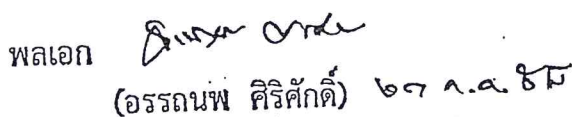 พลเอก
(อรรถนพ ศิริศักดิ์) ๒๗ ก.ค. ๕๘